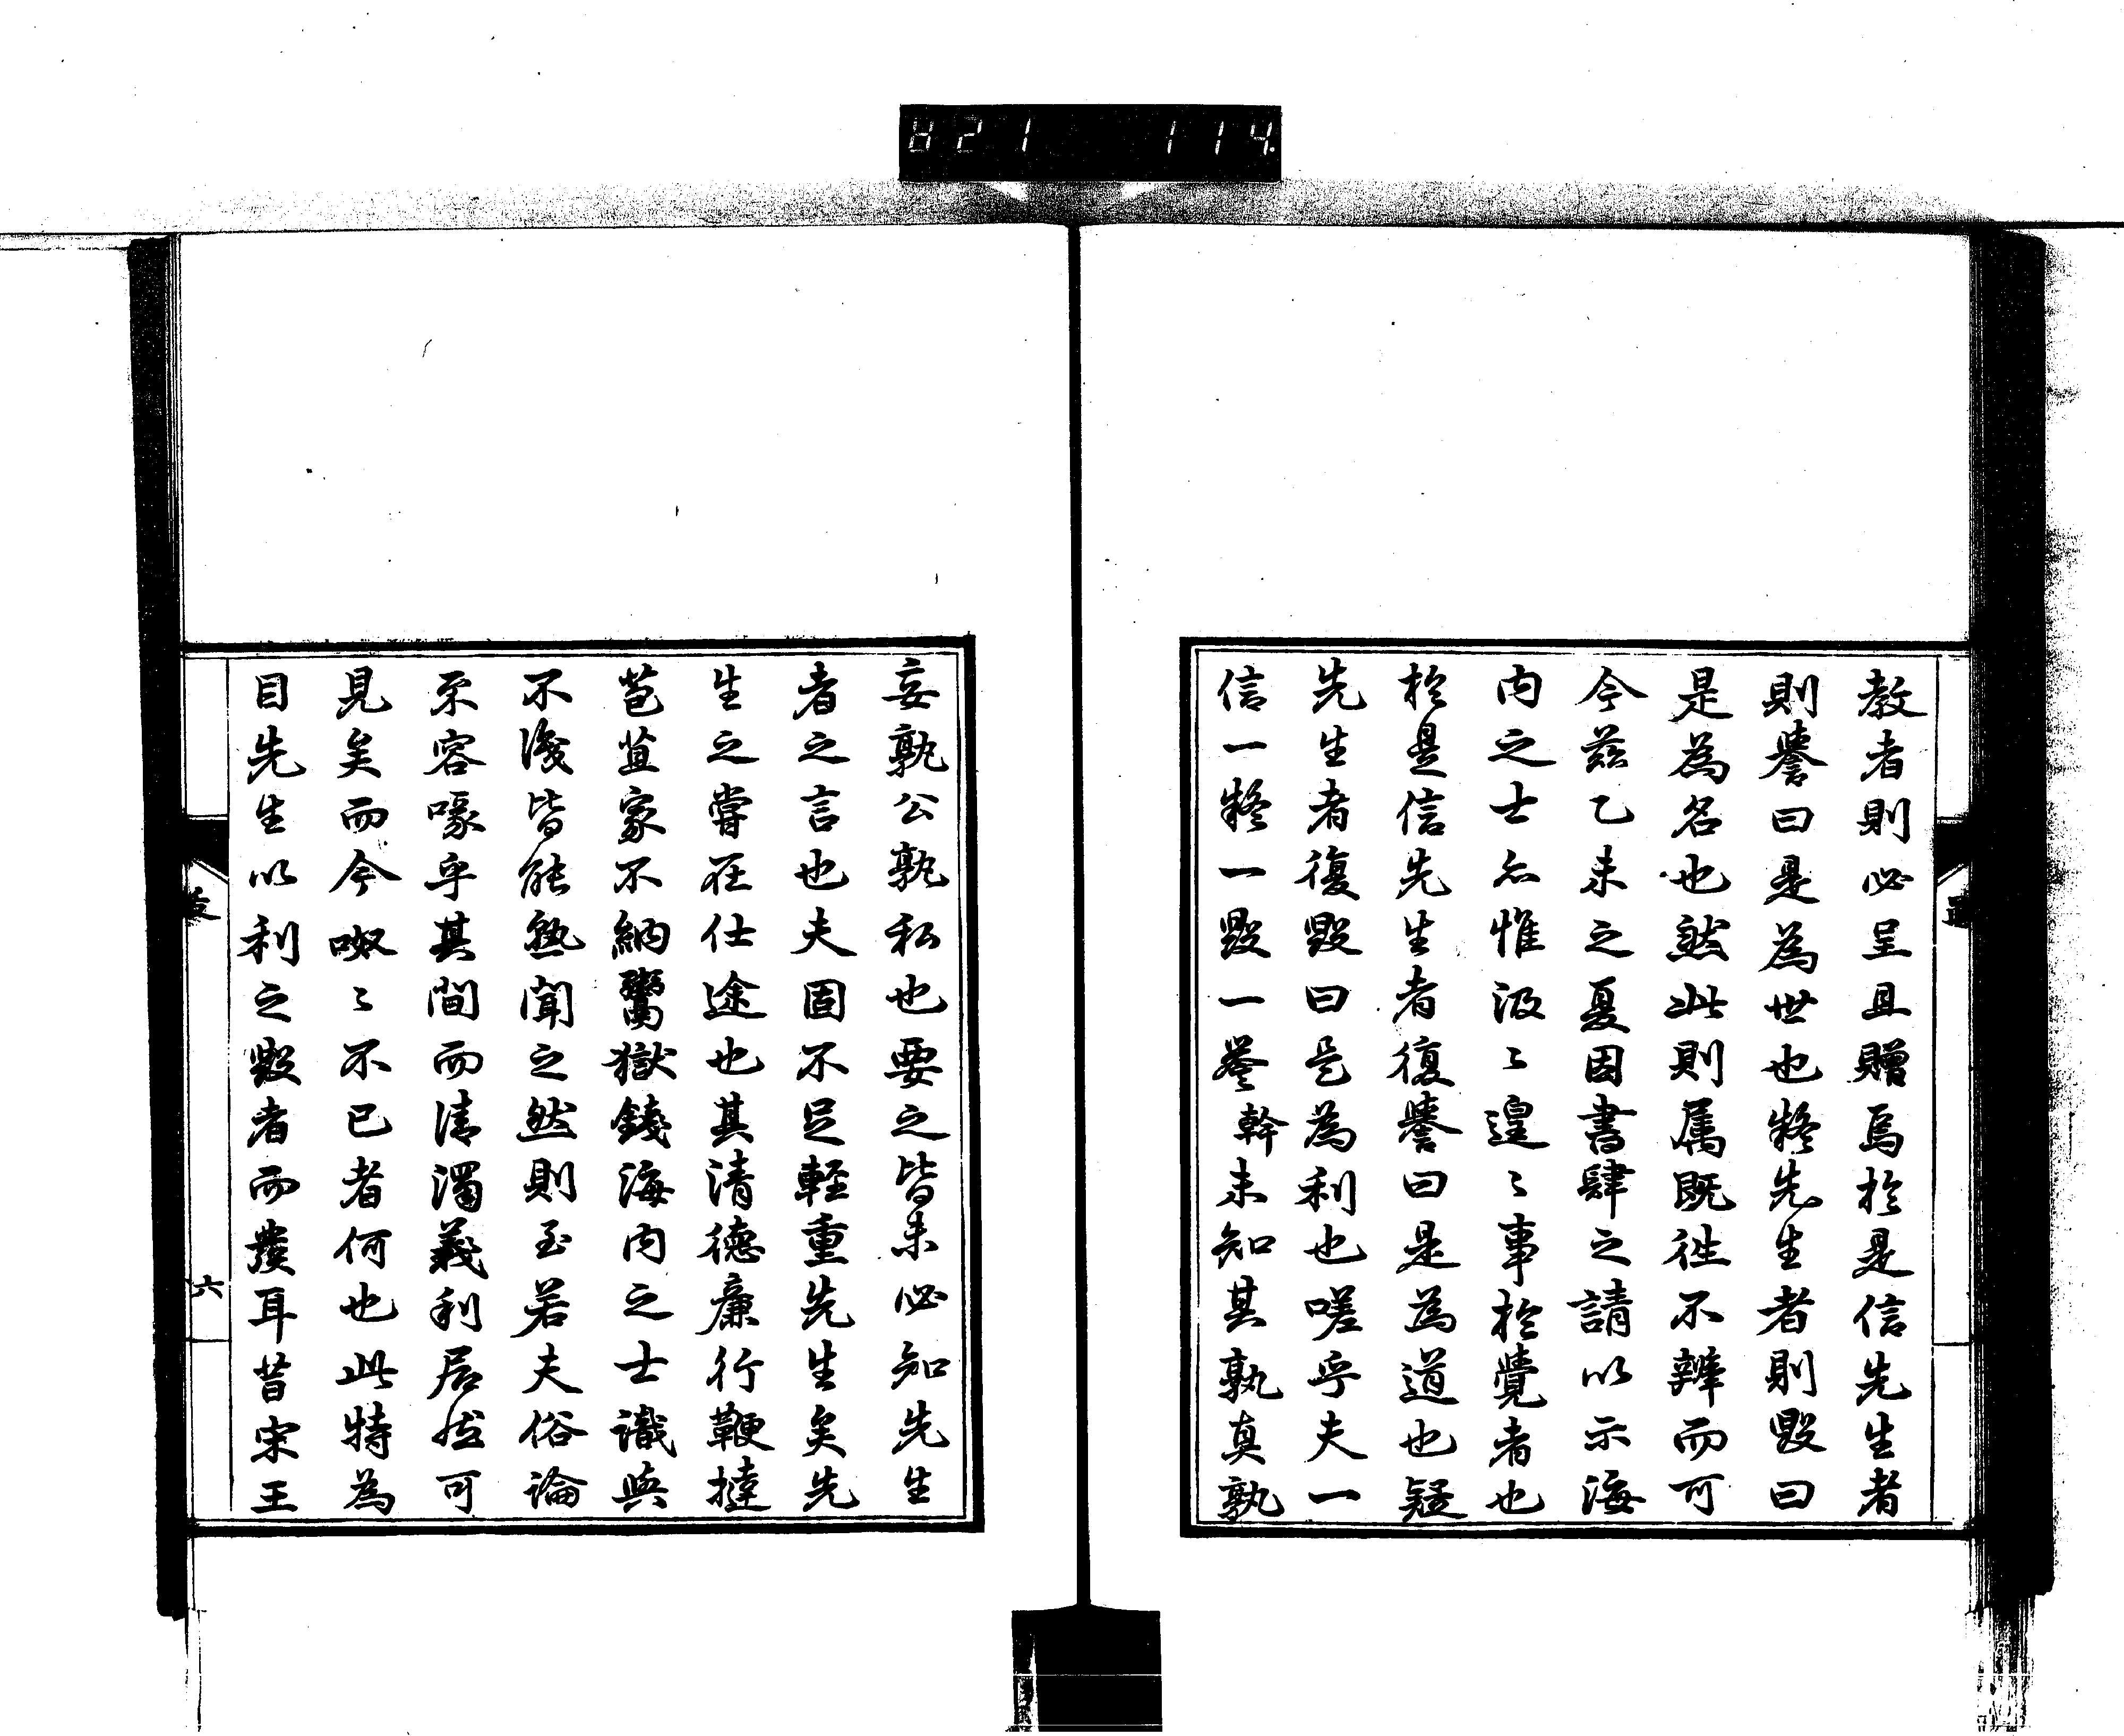 821 114.
教者則必呈且贈焉於是信先生者
則譽曰是為世也疑先生者則毀曰
是為名也然此則属既往不辨而可
今茲乙未之夏因書肆之請以示海
内之士亦惟汲〻遑〻事於覺者也
於是信先生者復譽曰是為道也疑
先生者復毀曰是為利也嗟乎夫一
信一疑一毀一譽幹未知其孰真孰
妄孰公孰私也要之皆未必知先生
者之言也夫固不足輕重先生矣先
生之嘗在仕途也其清德廉行鞭撻
苞苴家不納鬻獄錢海内之士識與
不識皆能熟聞之然則至若夫俗論
不容喙乎其間而清濁義利居然可
見矣而今呶〻不已者何也此特為
目先生以利之毀者而發耳昔宋王
六